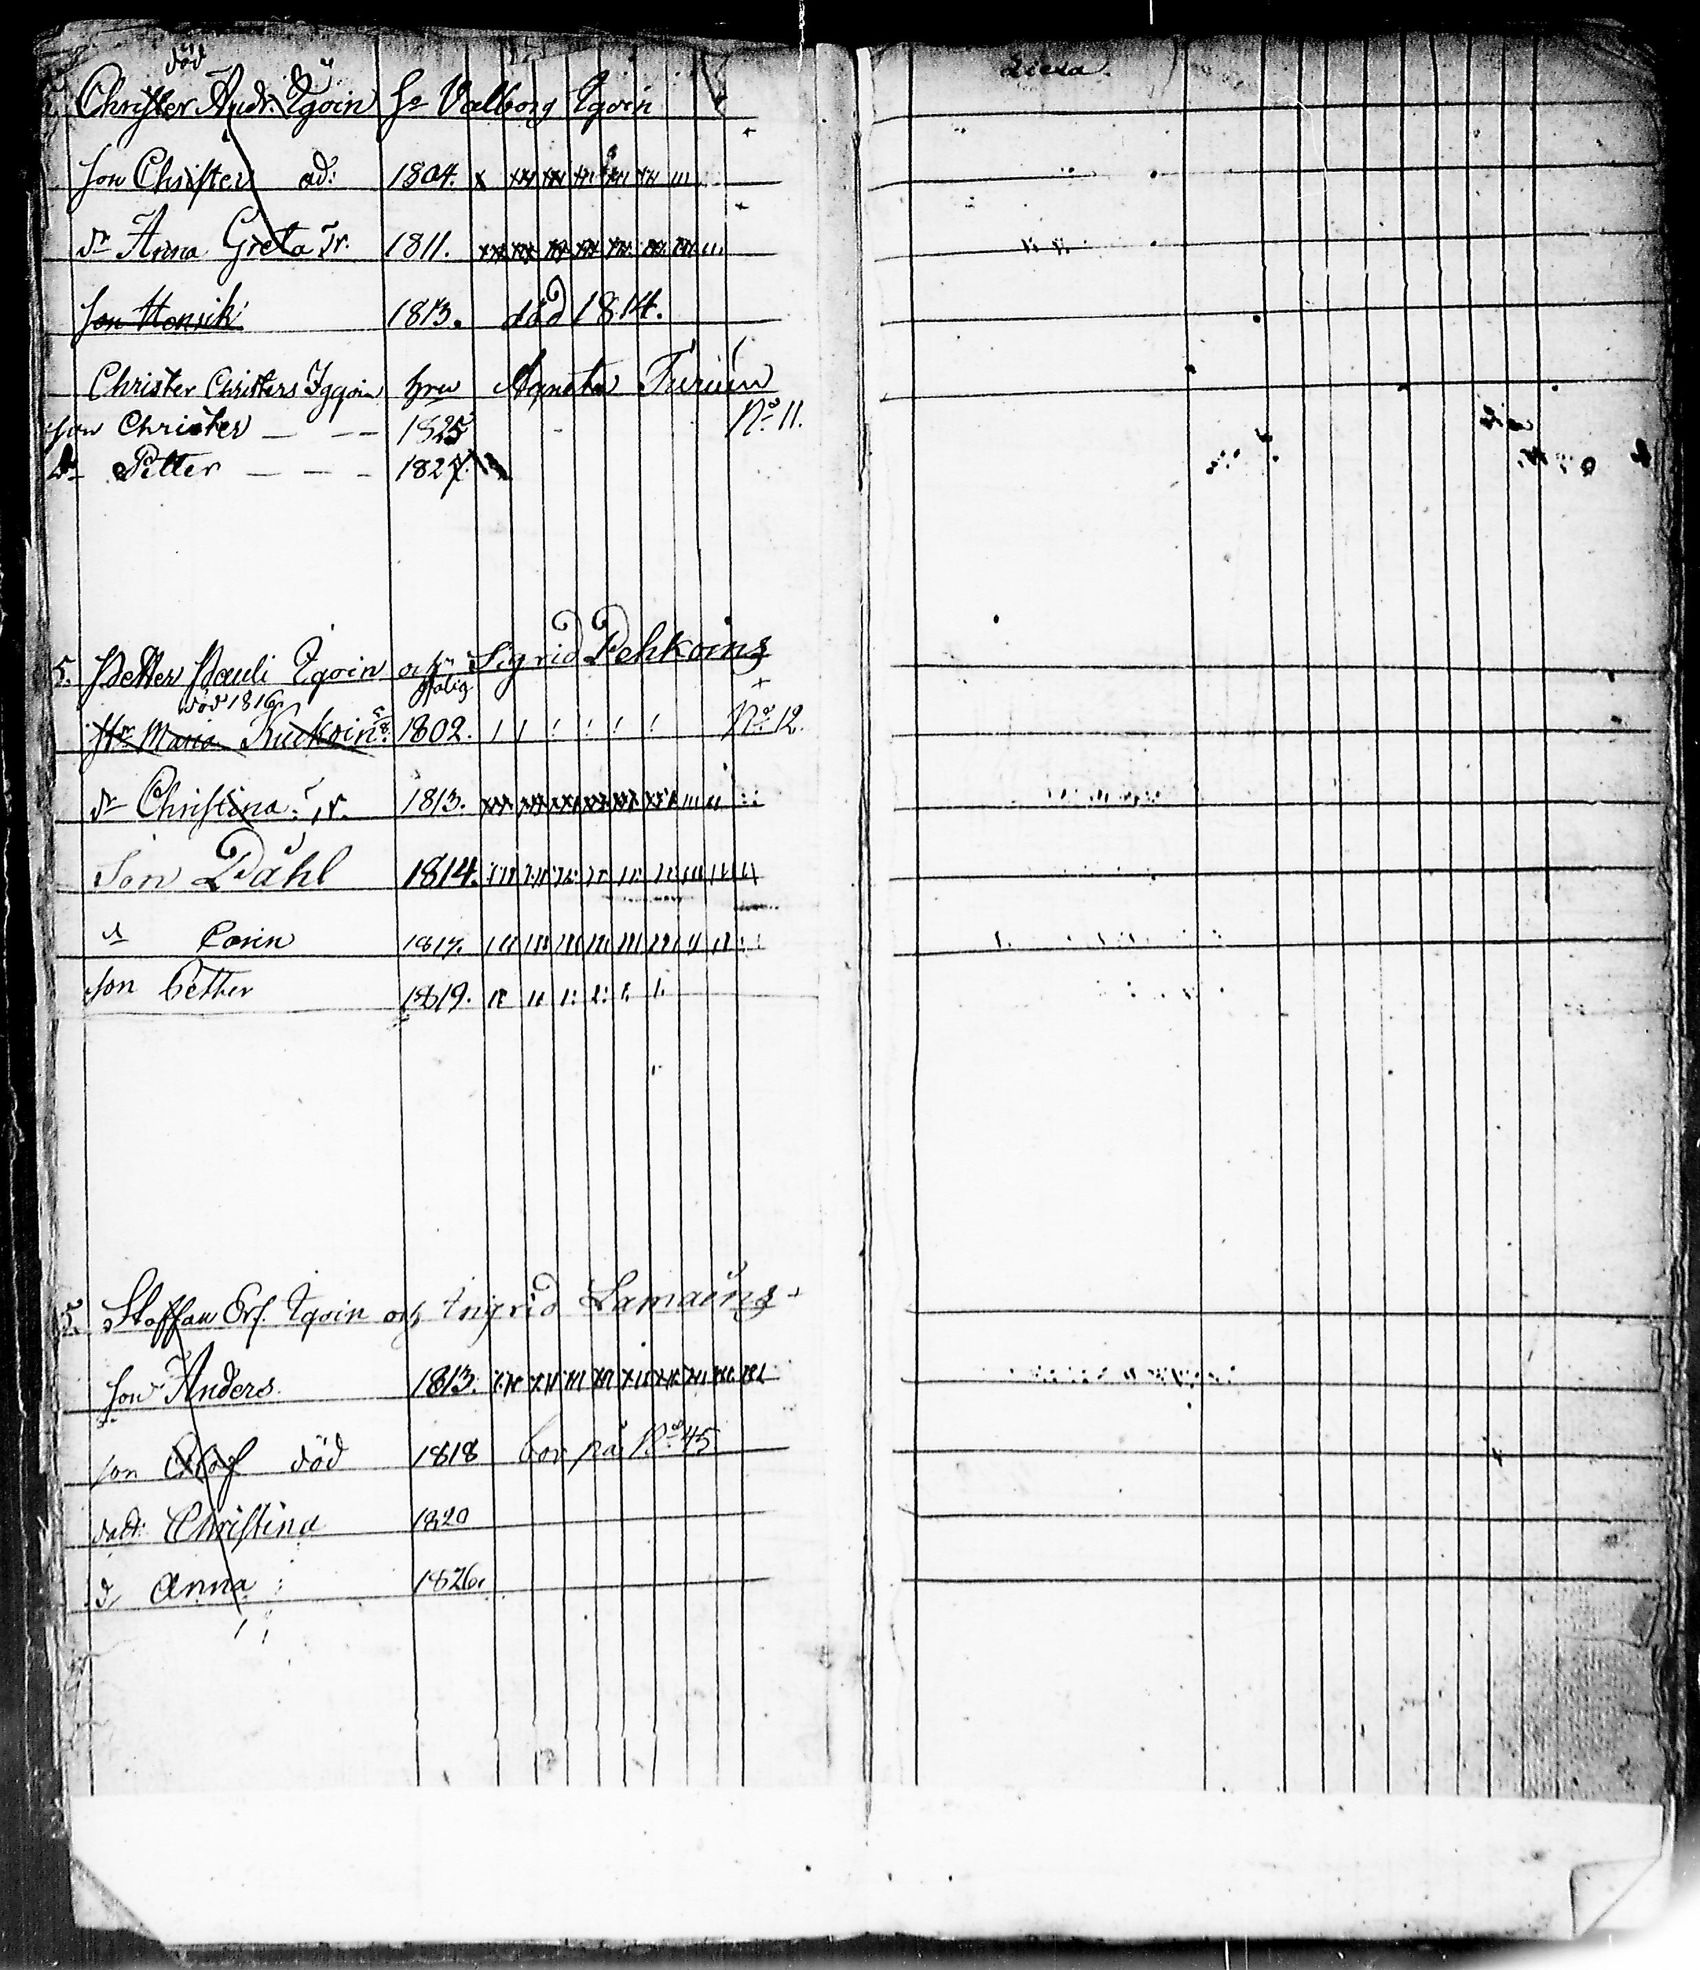 död
Christer Andr. Igoin h. Valborg Igoin
son Christer ad: 1804. x
dr Anna Greta Tr. 1811.
son Henrik 1813. död 1814.
Christer Christers Iggoin hru Agneta Turiin
son Christer — — — 1825 No 11.
dr Petter — — — 1827.
5. Petter Pauli Igoin och Sigrid Pehkoing
död 1816
Maria Kuckoin 1802. No 12.
dr Christina Tr. 1813.
Son Påhl 1814.
dr Carin 1817.
son Petter 1819.
5. Staffan Ers. Igoin och Ingrid Lamaing
son Anders 1813.
son Olof död 1818 bor på No 45
dott: Christina 1820
d Anna 1826.